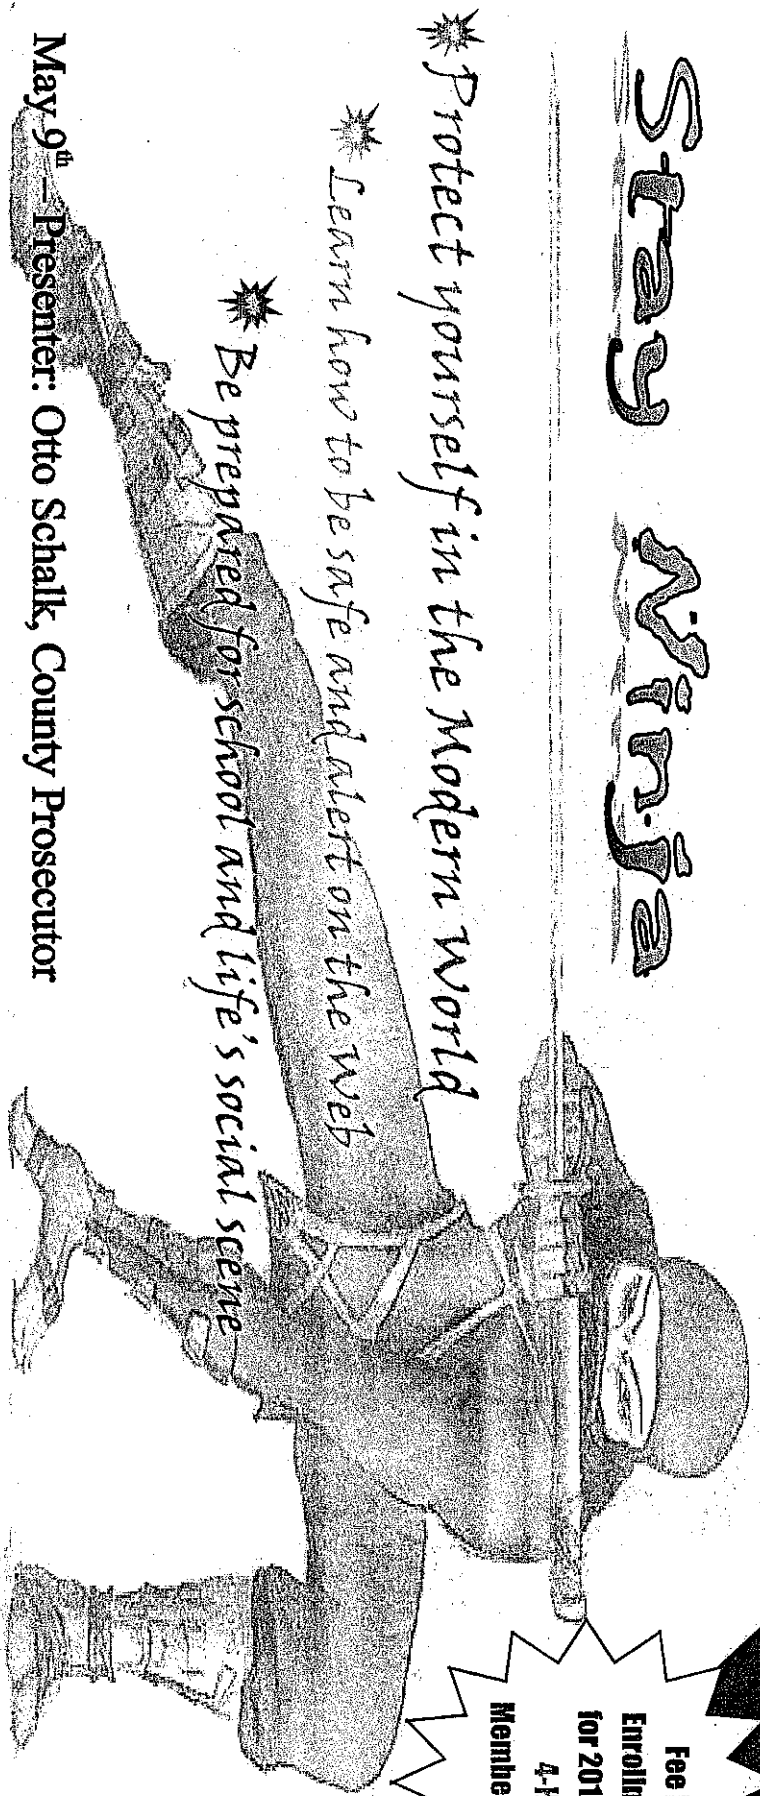 Stay Ninja
Protect yourself in the Modern World
Learn how to be safe and alert on the web
Be prepared for school and life's social scene
May 9th – Presenter: Otto Schalk, County Prosecutor
Fee
for